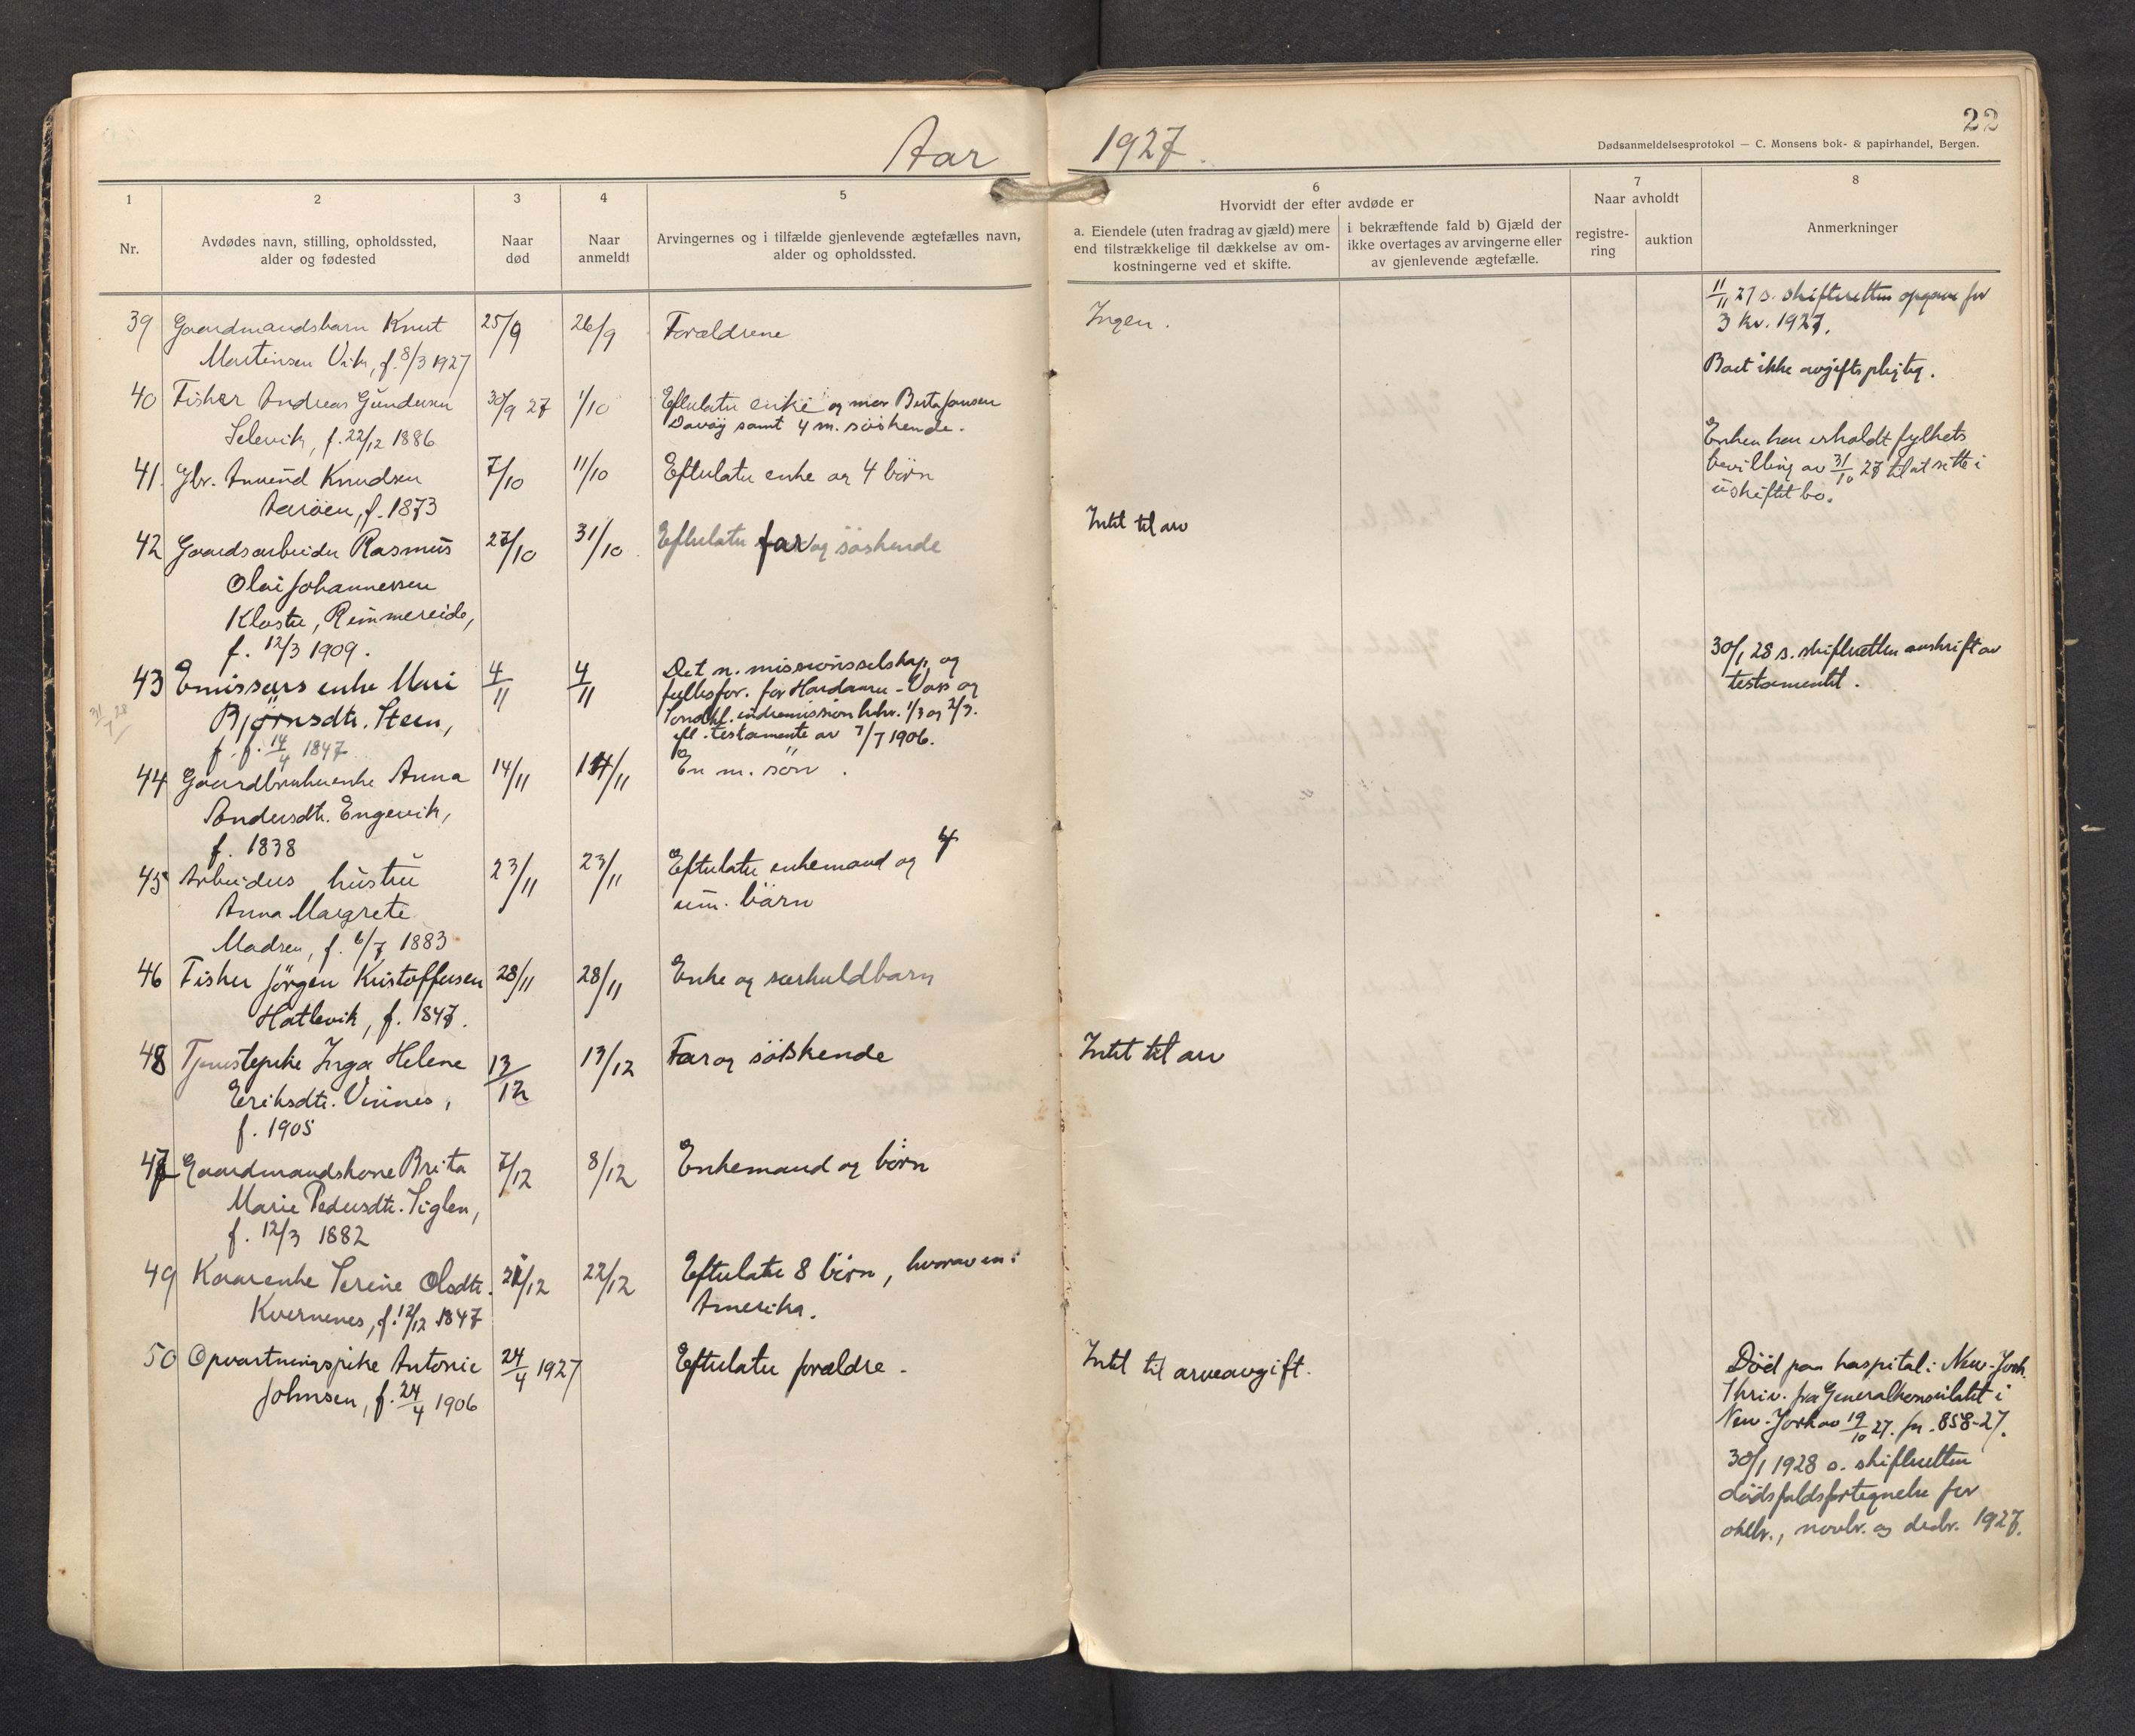 Aar 1927.
22
Dødsanmeldelsesprotokol — C. Monsens bok- & papirhandel, Bergen.
1
Nr.
2
Avdødes navn, stilling, opholdssted,
alder og fødested
3
Naar
død
4
Naar
anmeldt
5
Arvingernes og i tilfælde gjenlevende ægtefælles navn,
alder og opholdssted.
6
Hvorvidt der efter avdøde er
a. Eiendele (uten fradrag av gjæld) mere
end tilstrækkelige til dækkelse av om-
kostningerne ved et skifte.
i bekræftende fald b) Gjæld der
ikke overtages av arvingerne eller
av gjenlevende ægtefælle.
7
Naar avholdt
registre-
ring
auktion
8
Anmerkninger
11/11 27 s. skifteretten opgave for
3 kv. 1927.
39 Gaardmandsbarn Knut 25/9 26/9 Forældrene Ingen.
Martinsen Vik, f. 8/3 1927
Boet ikke avgiftspligtig.
40 Fisker Andreas Gundersen 30/9 27 1/10 Efterlater enke og mor Berta Jansen
Selevik, f. 22/12 1886 samt 4 m. søskende.
Enken har erholdt fylkets
bevilling av 31/10 27 til at sitte i
uskiftet bo.
41. Gbr. Amund Knudsen 7/10 11/10 Efterlater enke og 4 børn
Aarøen, f. 1873
42 Gaardsarbeider Rasmus 27/10 31/10 Efterlater far og søskende Intet til arv
Olai Johannessen
Kloster, Rimmereide,
f. 12/3 1909.
43 Emissærs enke Mari 4/11 4/11 Det n. missionsselskap og
Bjørnsdtr. Steen, fellesfor. for Hardanger - Voss og
Søndhl. indremission hhv. 1/3 og 2/3.
f. 14/4 1847 efl. testamente av 7/7 1906.
31/7 28
30/1 28 s. skifteretten avskrift av
testamentet.
44 Gaardbrukerenke Anna 14/11 14/11 En m. søn.
Andersdtr. Engevik,
f. 1838
45 Arbeiders hustru 23/11 23/11 Efterlater enkemand og 4
Anna Margrete um. børn
Madsen, f. 6/7 1883
46 Fisker Jörgen Kristoffersen 28/11 28/11 Enke og særkuldbarn
Hatlevik, f. 1847.
48 Tjenestepike Inga Helene 13/12 13/12 Far og søskende Intet til arv
Eriksdtr. Vinnes,
f. 1905
47 Gaardmandskone Brita 7/12 8/12 Enkemand og børn
Marie Pedersdtr. Siglen,
f. 12/3 1882
49 Kaarenke Serine Olsdtr. 21/12 22/12 Efterlater 8 børn, hvorav en i
Kvernenes, f. 12/12 1847 Amerika.
50 Opvartningspike Antonie 24/4 1927 Efterlater forældre. Intet til arveavgift.
Johnsen, f. 24/4 1906
Död paa hospital i New-York.
Skriv. fra Generalkonsulatet i
New-York av 19/10 27. jn. 858-27.
30/1 1928 s. skifteretten
dödsfaldsfortegnelse for
oktbr., novbr. og desbr. 1927.